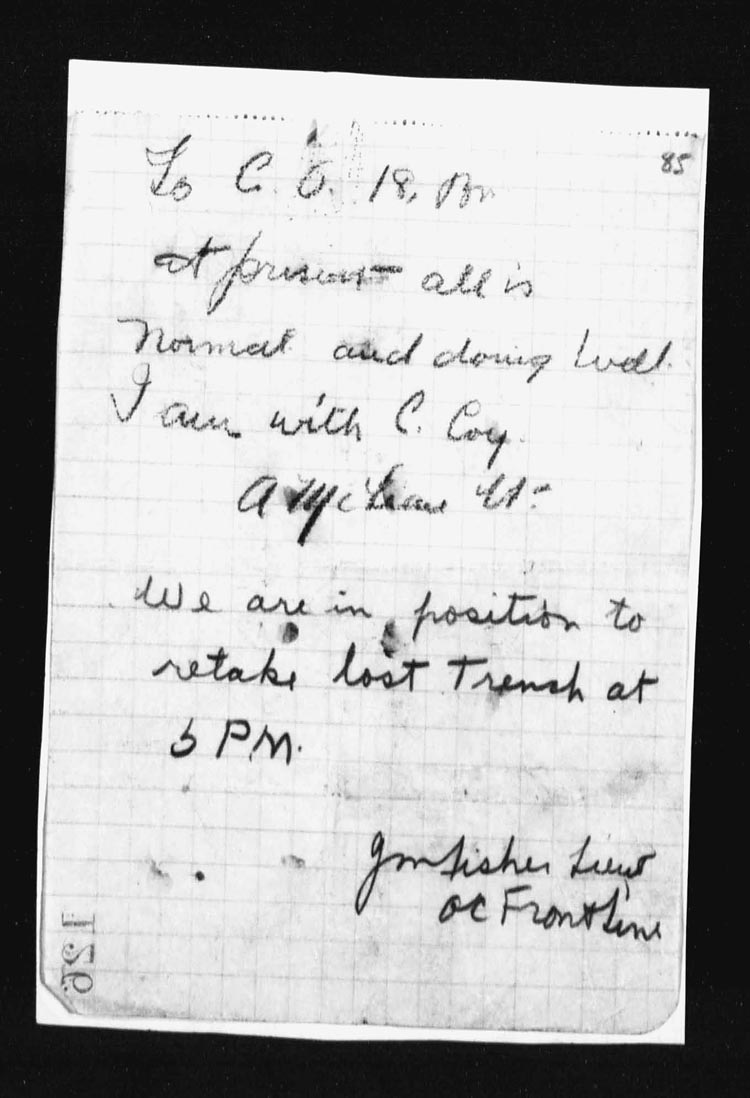 85
To C. O. 18, Bn
at present all is
Normal and doing well.
I am with C. Coy.
A McLean Lt.
We are in position to
retake lost Trench at
5 PM.
JM Fisher Lieut
OC Front Line
126